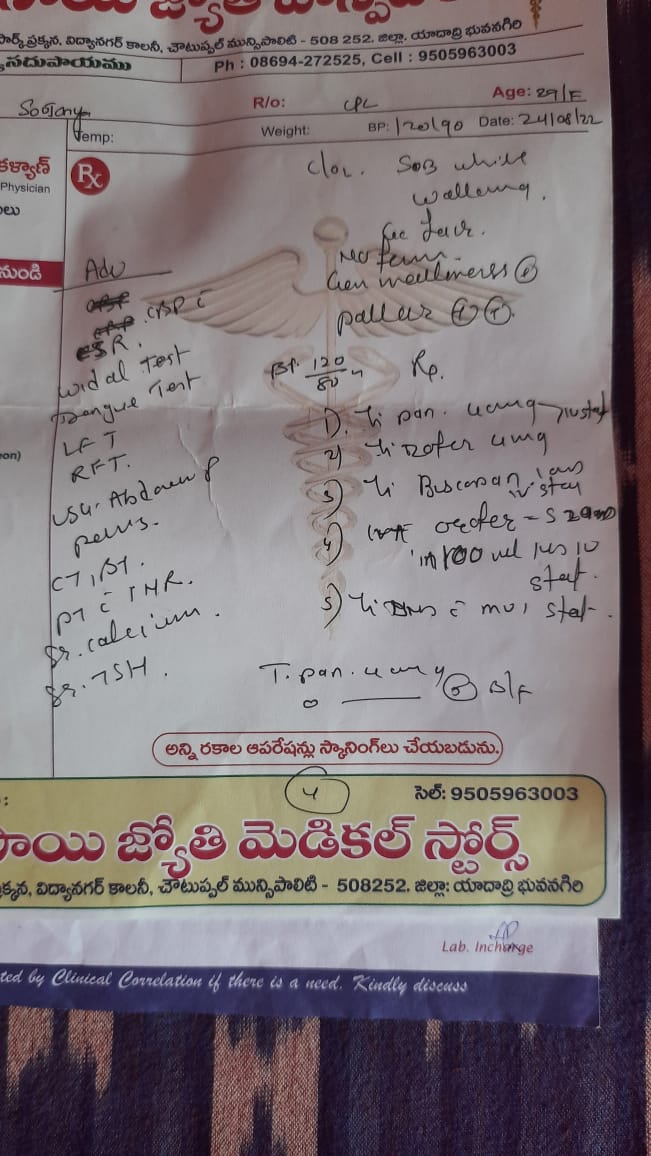 సాయి జ్యోతి హాస్పిటల్
పార్క్ ప్రక్కన, విద్యానగర్ కాలనీ, చౌటుప్పల్ మున్సిపాలిటి - 508 252. జిల్లా. యాదాద్రి భువనగిరి
సదుపాయము
Ph : 08694-272525, Cell : 9505963003
R/o: CPL Age: 29/F
Temp: Weight: BP: 120/90 Date: 24/08/22
కళ్యాణ్
Physician
Rx
నుండి
on)
c/o. SOB while
walking.
Adv
CBP c
ESR.
Widal Test
Dengue Test
LFT
RFT.
USG. Abdomen &
pelvis.
CT, BT.
PT c INR.
Sr. calcium.
Sr. TSH.
Gen weakness
pallor
BP. 120/80
Rp.
1) pan. 40mg stat
2) Zofer 4mg
3) Buscopan
stat
4) orofer-S 200
in 100 ml NS
stat.
5) DNS c MVI stat.
T. pan. 40mg
B/F
అన్ని రకాల ఆపరేషన్లు స్కానింగ్‌లు చేయబడును.
4
సెల్: 9505963003
సాయి జ్యోతి మెడికల్ స్టోర్స్
ప్రక్కన, విద్యానగర్ కాలనీ, చౌటుప్పల్ మున్సిపాలిటి - 508252. జిల్లా: యాదాద్రి భువనగిరి
Lab. Incharge
ted by Clinical Correlation if there is a need. Kindly discuss